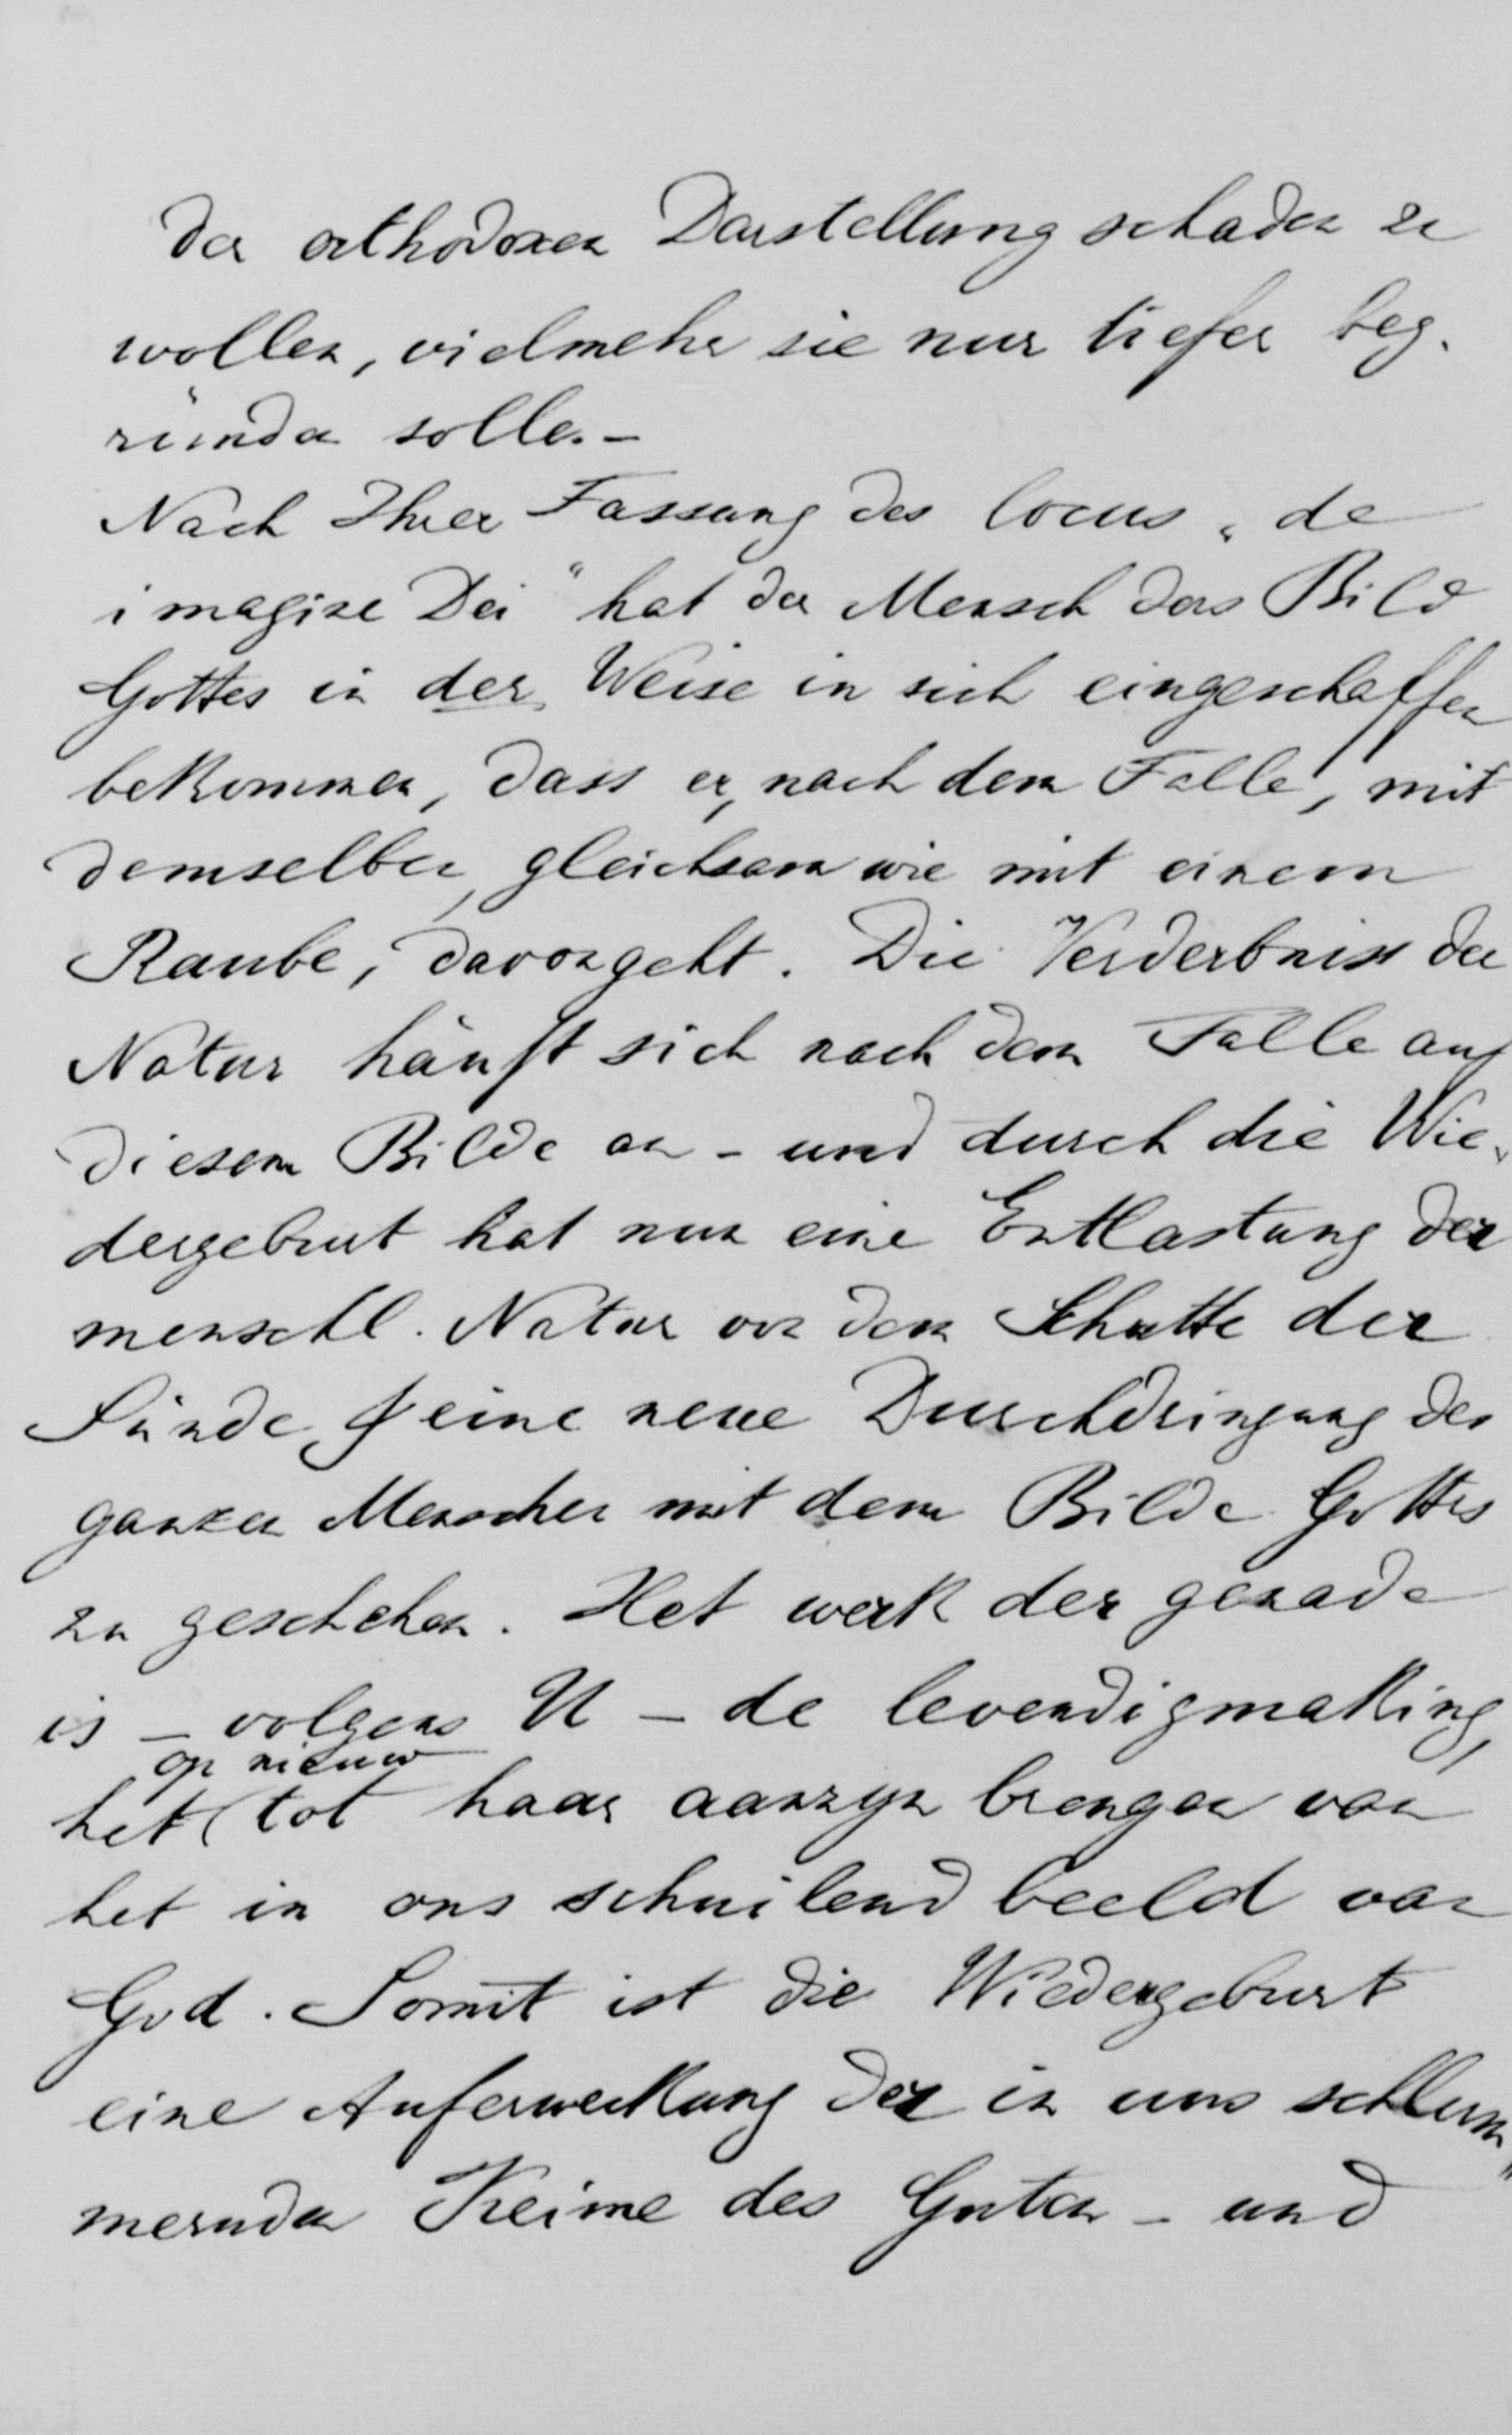 der orthodoxen Darstellung schaden zu
wollen, vielmehr sie nur tiefer beg-
ründen solle. -
Nach Ihrer Fassung des locus „de
imagine Dei" hat der Mensch das Bild
Gottes in der Weise in sich eingeschaffen
bekommen, dass er, nach dem Falle, mit
demselben, gleichsam wie mit einem
Raube, davongeht. Die Verderbniss der
Natur häuft sich nach dem Falle auf
diesem Bilde an - und durch die Wie-
dergeburt hat nun eine Entlastung der
menschl. Natur von dem Schutte der
Sünde, & eine neue Durchdringung des
ganzen Menschen mit dem Bilde Gottes
zu geschehen. Het werk der genade
is - volgens U - de levendigmaking,
op nieuw
het tot haar aanzyn brengen van
het in ons schuilend beeld van
God. Somit ist die Wiedergeburt
eine Auferweckung der in uns schlum-
mernden Keime des Guten - und